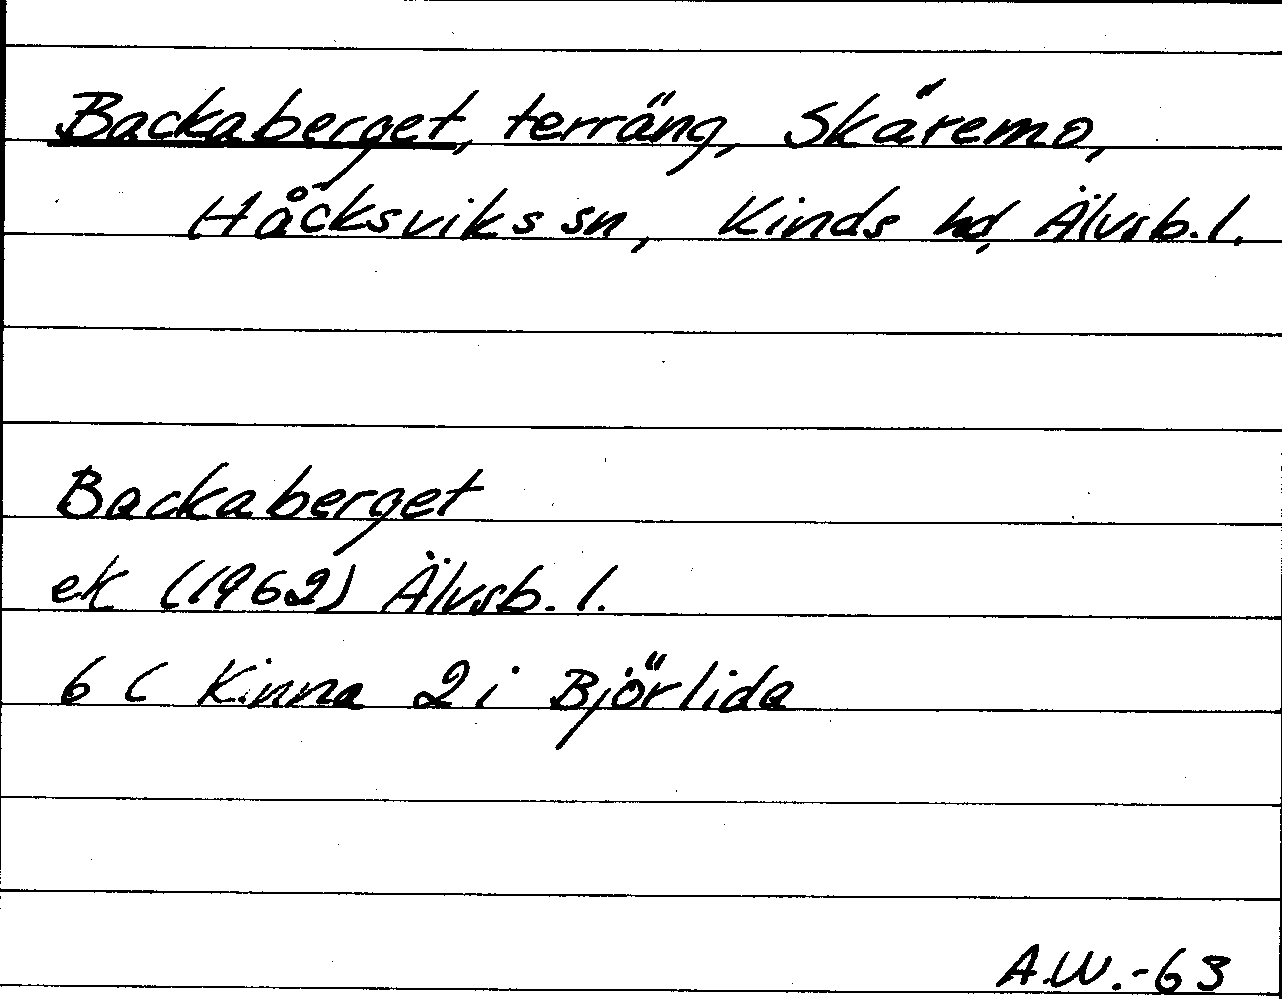 Backaberget, terräng, Skäremo,
Håcksviks sn, Kinds hd, Älvsb. l.
Backaberget
ek (1962) Älvsb. l.
6 C Kinna 2 i Björlida
A.W.-63